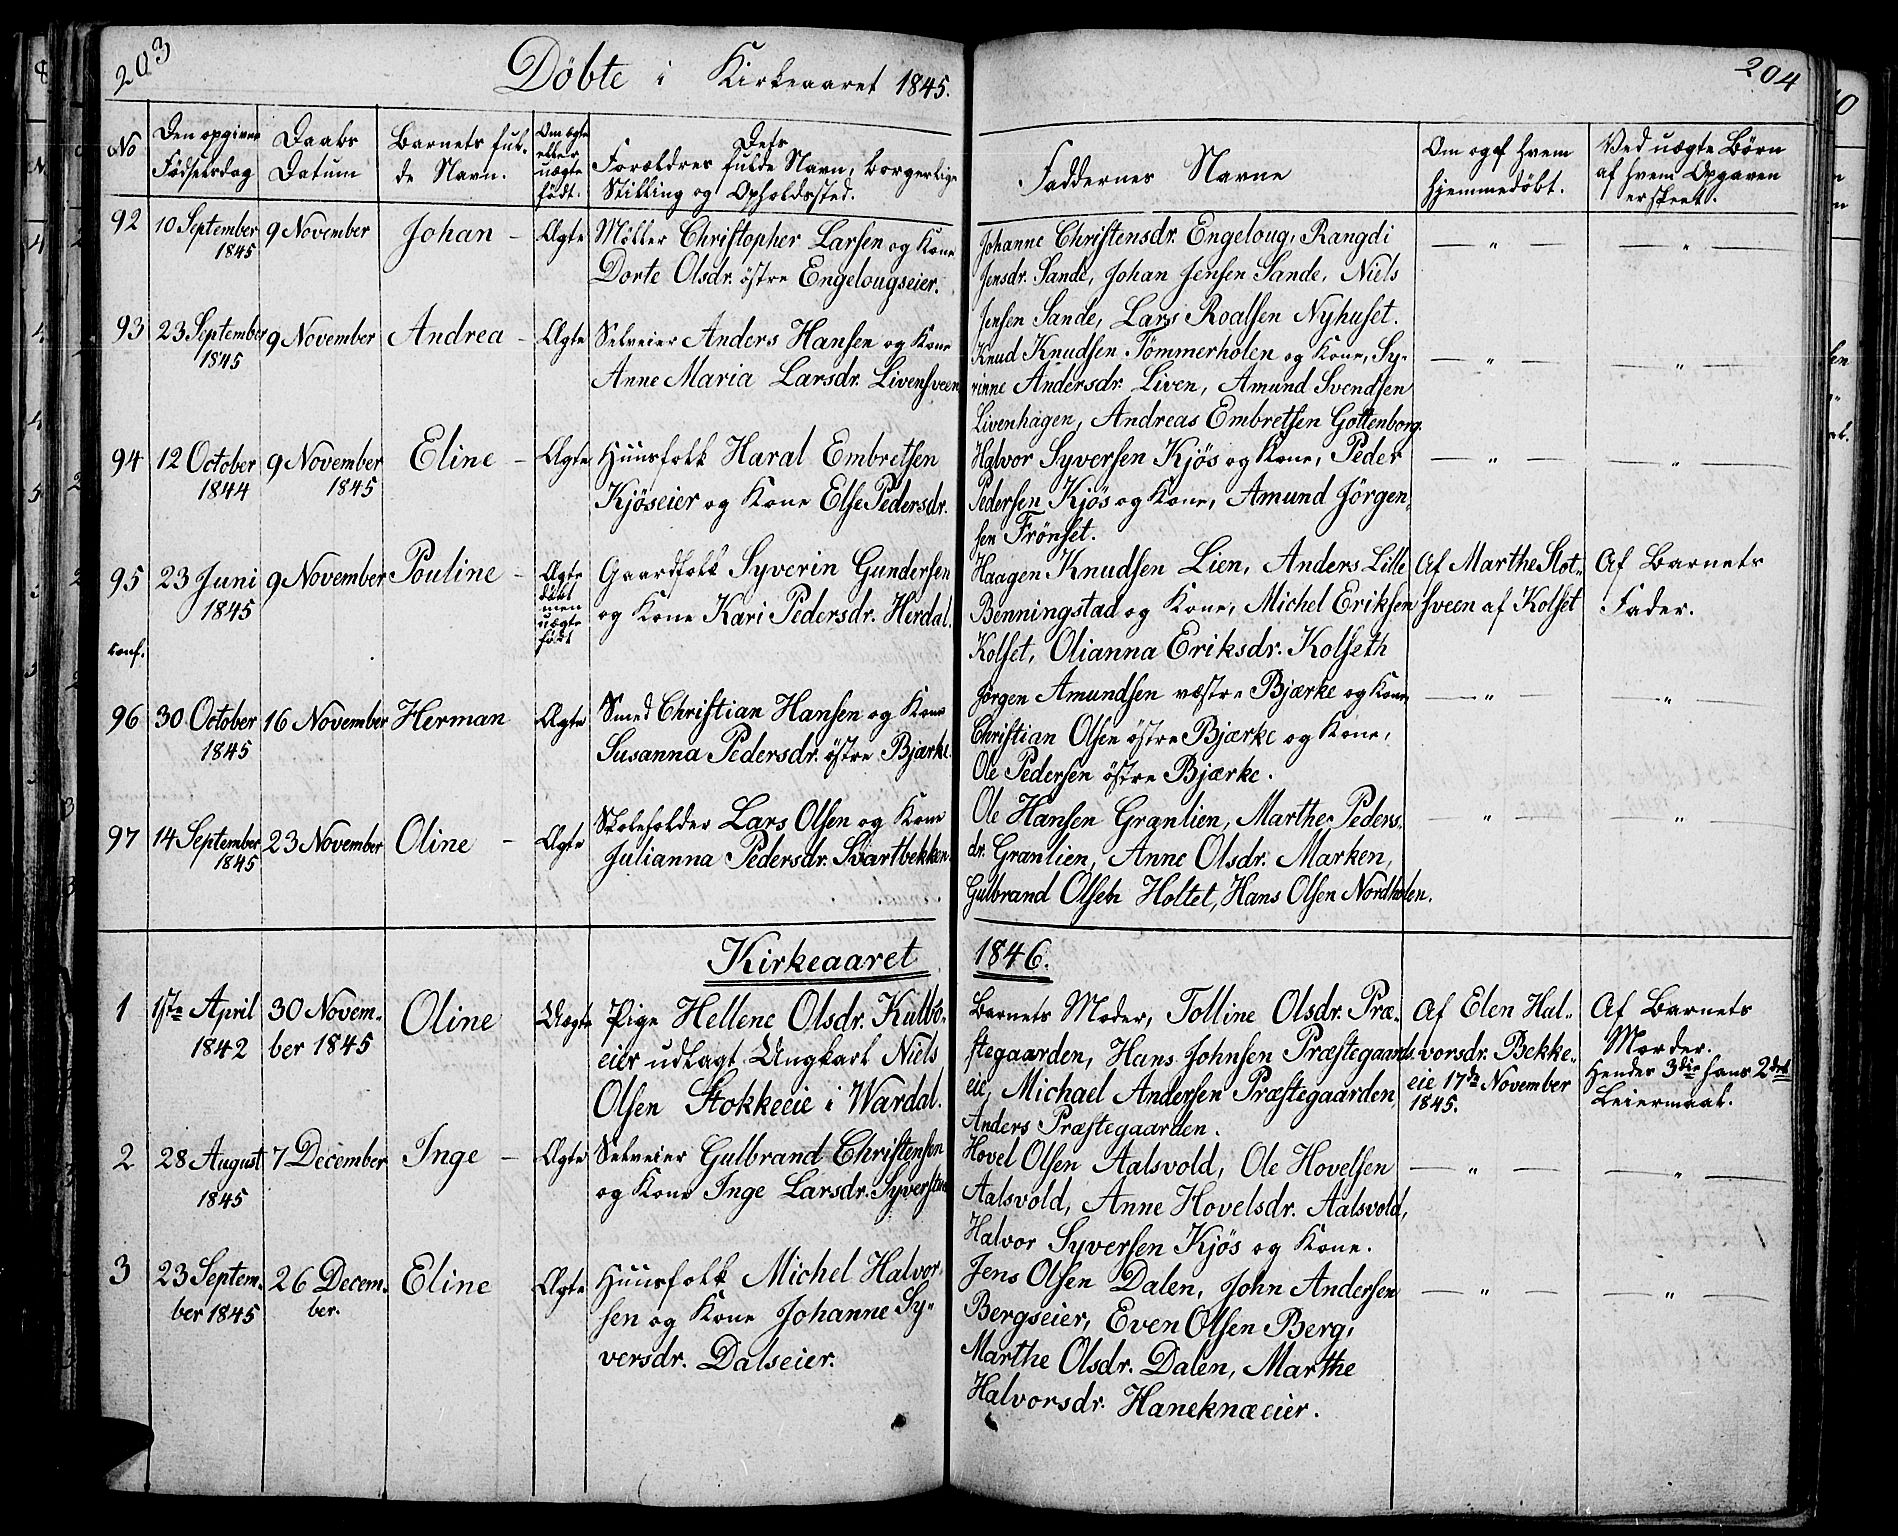 203
Döbte i Kirkeaaret 1845.
204
No
Den opgivne Fødselsdag
Daabs Datum
Barnets fulde Navn.
Om ægte eller uægte født.
Dets Forældres fulde Navn, borgerlige Stilling og Opholdssted.
Faddernes Navne
Om og af hvem hjemmedöbt.
Ved uægte Börn af hvem Opgaven er skeet.
92
10 September
1845
9 November
Johan -
Ægte
Møller Christopher Larsen og Kone
Dorte Olsdr. östre Engelougseier.
Johanne Christensdr. Engeloug, Rangdi
Jensdr. Sande, Johan Jensen Sande, Niels
Jensen Sande, Lars Roalsen Nyhuset.
— " —
— " —
93
23 September
1845
9 November
Andrea -
Ægte
Selveier Anders Hansen og Kone
Anne Maria Larsdr. Livensveen
Knud Knudsen Tömmerholen og Kone, Sy-
rinne Andersdr. Liven, Amund Svendsen
Livenhagen, Andreas Embretsen Gottenborg.
— " —
— " —
94
12 October
1844
9 November
1845
Eline -
Ægte
Huusfolk Haral Embretsen
Kjöseier og Kone Else Pedersdr.
Halvor Syversen Kjös og Kone, Peder
Pedersen Kjös og Kone, Amund Jörgen-
sen Frönset.
— " —
— " —
95
conf.
23 Juni
1845
9 November
Pouline -
Ægte
döbt
men
uægte
født
Gaardfolk Syverin Gundersen
og Kone Kari Pedersdr. Herdal.
Haagen Knudsen Lien, Anders Lille
Benningstad og Kone, Michel Eriksen
Kolset, Olianna Eriksdr. Kolseth
Af Marthe Slot-
sveen af Kolset
Af Barnets
Fader.
96
30 October
1845
16 November
Herman
Ægte
Smed Christian Hansen og Kone
Susanna Pedersdr. östre Bjærke.
Jörgen Amundsen væstre Bjærke og Kone
Christian Olsen östre Bjærke og Kone,
Ole Pedersen östre Bjærke.
— " —
— " —
97
14 September
1845
23 November
Oline -
Ægte
Skoleholder Lars Olsen og Kone
Julianna Pedersdr. Svartbekken
Ole Hansen Granlien, Marthe Peders-
dr. Granlien, Anne Olsdr. Marken,
Gulbrand Olsen Holtet, Hans Olsen Nordholen.
— " —
— " —
Kirkeaaret 1846.
1
1ste April
1842
30 Novem-
ber 1845
Oline
Uægte
Pige Hellene Olsdr. Kulbo-
eier udlagt Ungkarl Niels
Olsen Stokkeeie i Wardal.
Barnets Moder, Tolline Olsdr. Præ-
stegaarden, Hans Johnsen Præstegaards-
eie, Michael Andersen Præstegaarden,
Anders Præstegaarden.
Af Elen Hal-
vorsdr. Bekke-
eie 17de November
1845.
Af Barnets
Moder.
Hendes 3die hans 2det
Leiermaal.
2
28 August
1845
7 December
Inge -
Ægte
Selveier Gulbrand Christensen
og Kone Inge Larsdr. Syverstu
Hovel Olsen Aalsvold, Ole Hovelsen
Aalsvold, Anne Hovelsdr. Aalsvold,
Halvor Syversen Kjös og Kone.
— " —
— " —
3
23 Septem-
ber 1845
26 Decem-
ber.
Eline
Ægte
Huusfolk Michel Halvor-
sen og Kone Johanne Sy-
versdr. Dalseier.
Jens Olsen Dalen, John Andersen
Bergseier, Even Olsen Berg,
Marthe Olsdr. Dalen, Marthe
Halvorsdr. Haneknæeier.
— " —
— " —